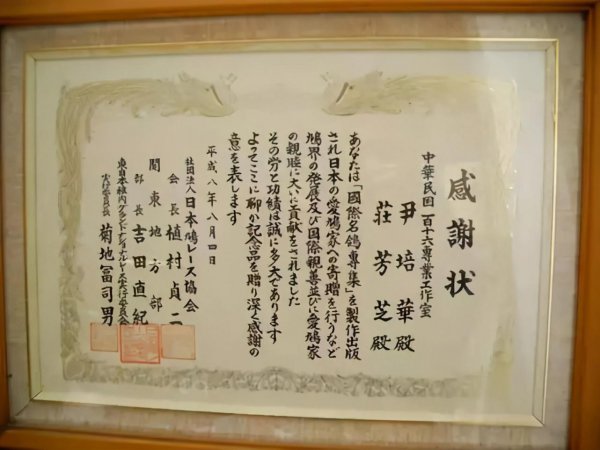 感謝状
中華民国 百十六専業工作室
尹培華殿
莊芳芝殿
あなたは「國際名鴿専集」を製作出版
され日本の愛鳩家への寄贈を行うなど
鳩界の発展及び国際親善並びに愛鳩家
の親睦に大いに貢献をされました
その労と功績は誠に多大であります
よってここに聊か記念品を贈り深く感謝の
意を表します
平成八年八月四日
社団法人日本鳩レース協会
会長 植村貞二
関東地方部
部長 吉田直紀
東日本稚内グランドナショナルレース実行委員会
実行委員長 菊地冨司男